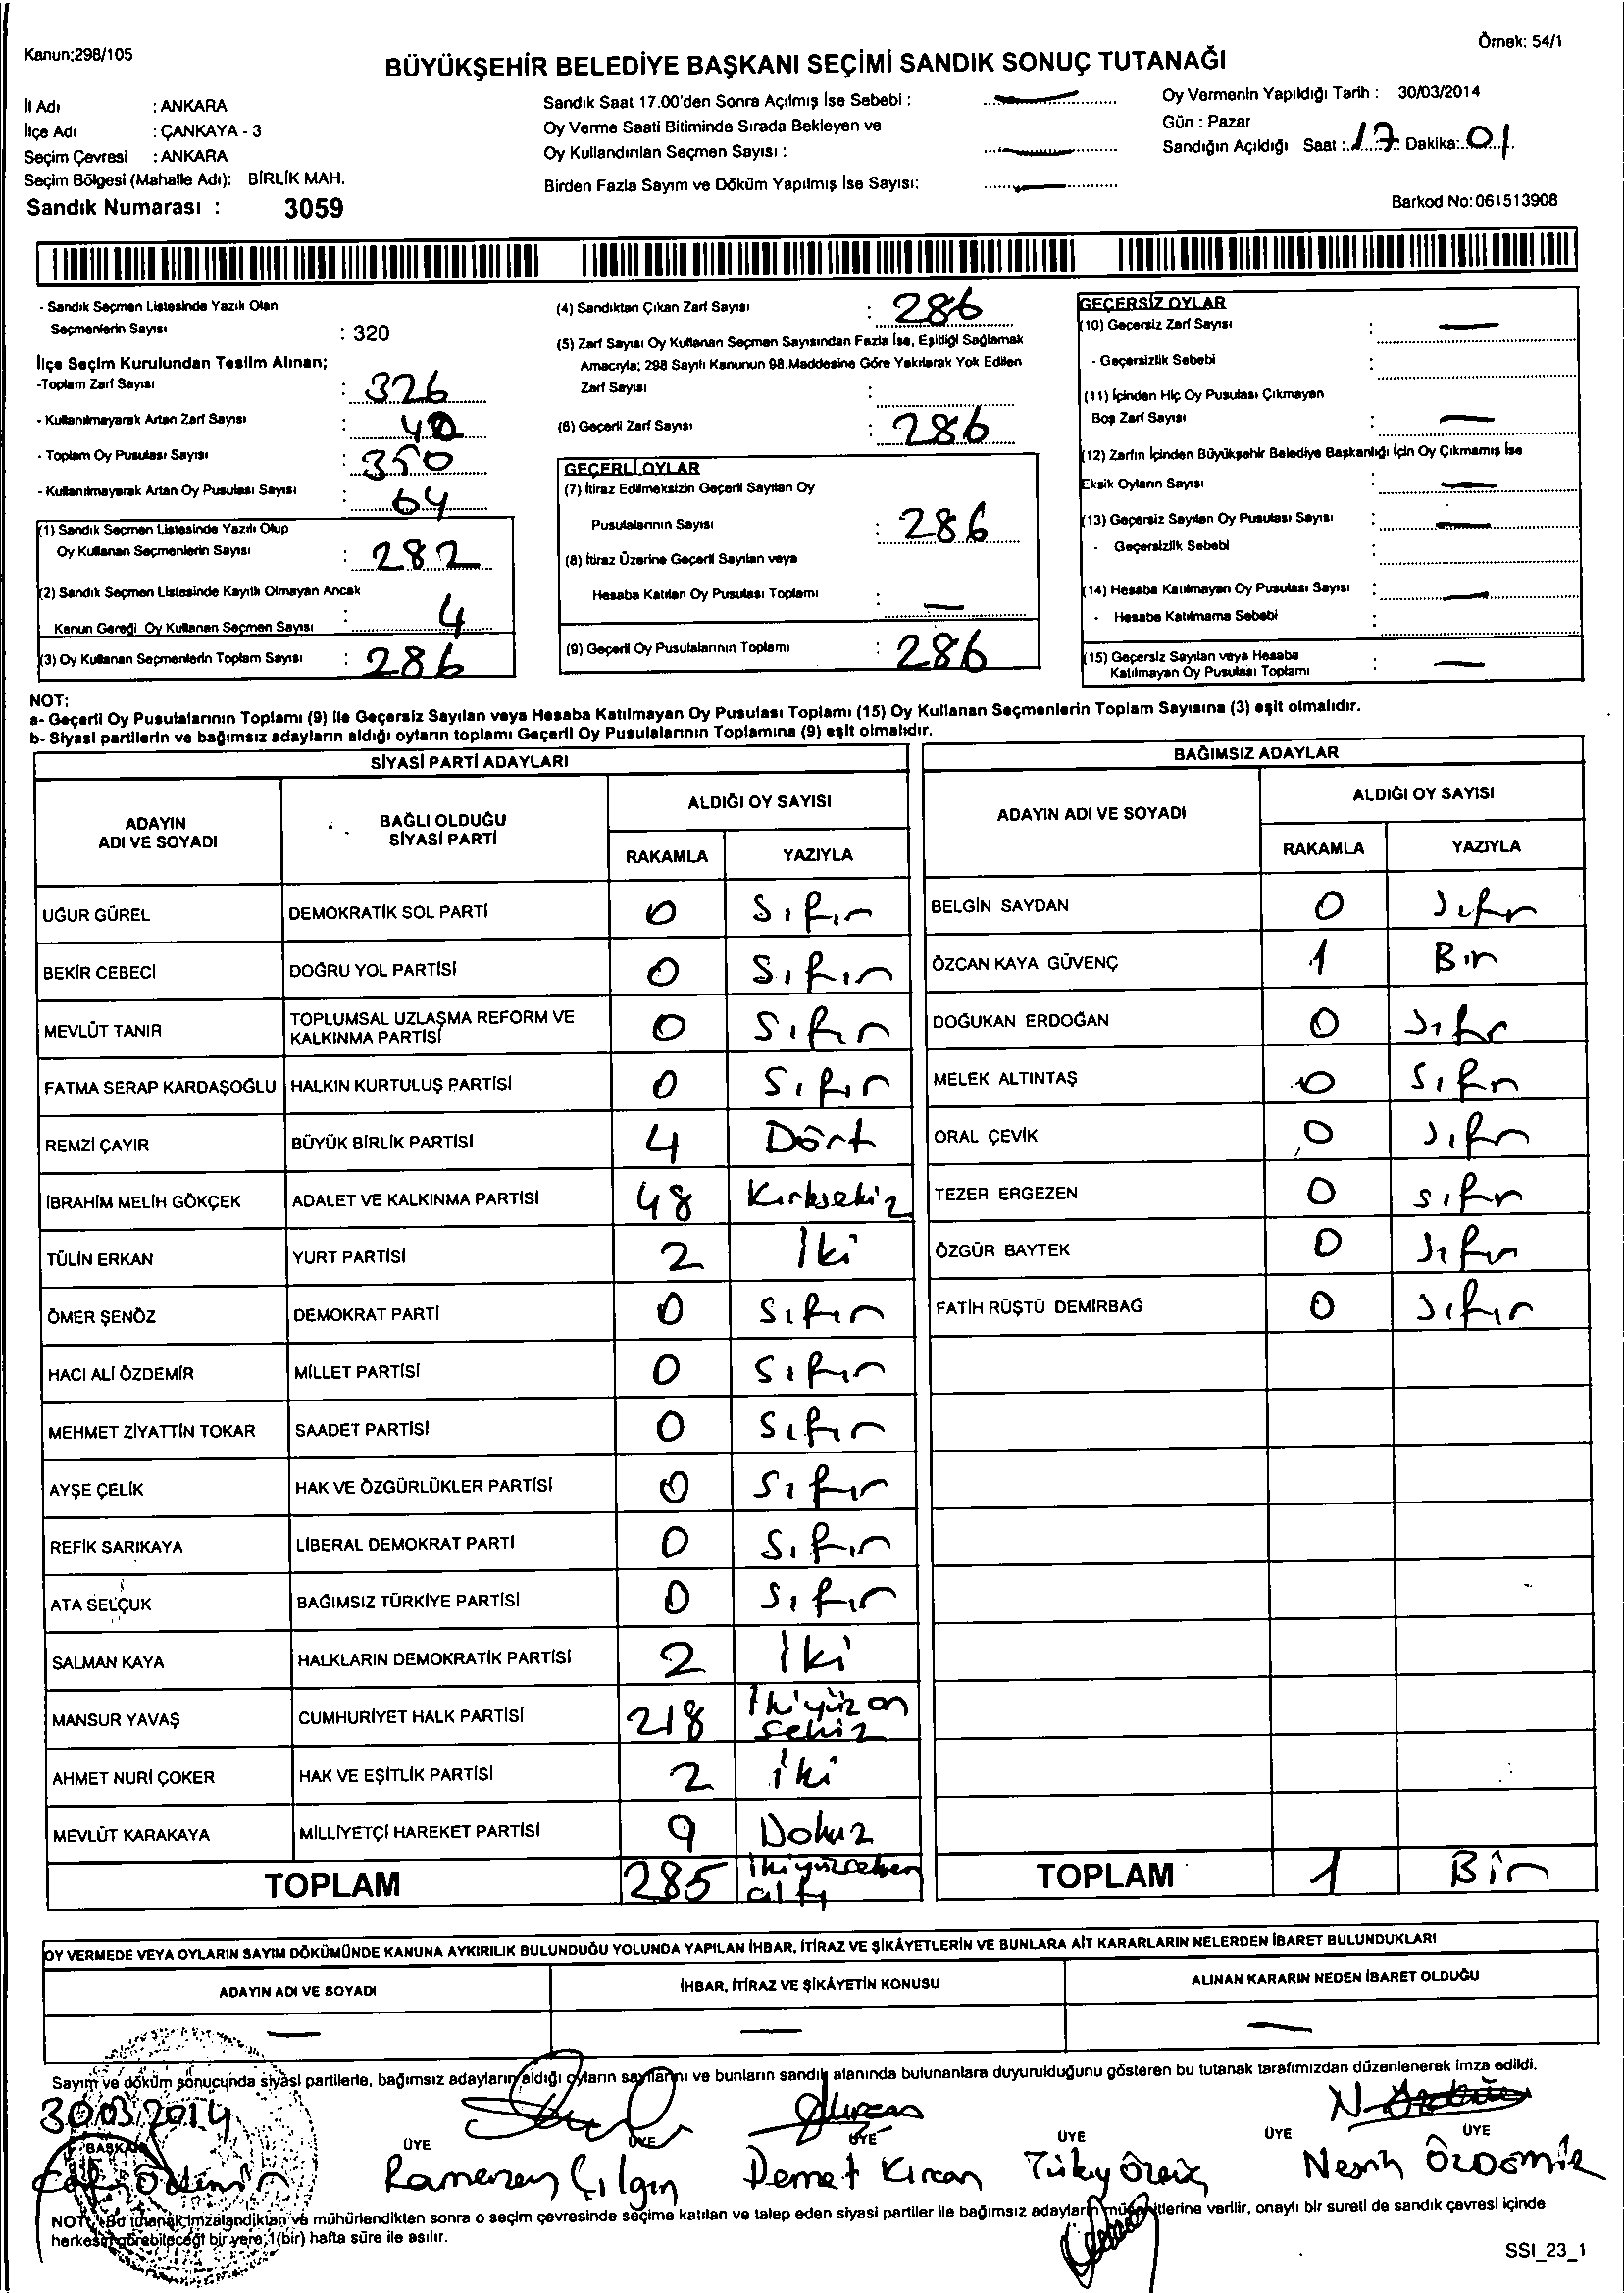 Kanun:298/105
Örnek: 54/1
BÜYÜKŞEHİR BELEDİYE BAŞKANI SEÇİMİ SANDIK SONUÇ TUTANAĞI
İl Adı : ANKARA
İlçe Adı : ÇANKAYA - 3
Seçim Çevresi : ANKARA
Seçim Bölgesi (Mahalle Adı): BİRLİK MAH.
Sandık Numarası : 3059
Sandık Saat 17.00'den Sonra Açılmış İse Sebebi :
Oy Verme Saati Bitiminde Sırada Bekleyen ve
Oy Kullandırılan Seçmen Sayısı :
Birden Fazla Sayım ve Döküm Yapılmış İse Sayısı:
Oy Vermenin Yapıldığı Tarih : 30/03/2014
Gün : Pazar
Sandığın Açıldığı Saat : 17 Dakika: 01
Barkod No: 061513908
- Sandık Seçmen Listesinde Yazılı Olan
Seçmenlerin Sayısı : 320
İlçe Seçim Kurulundan Teslim Alınan;
-Toplam Zarf Sayısı : 326
- Kullanılmayarak Artan Zarf Sayısı : 40
- Toplam Oy Pusulası Sayısı : 350
- Kullanılmayarak Artan Oy Pusulası Sayısı : 64
(1) Sandık Seçmen Listesinde Yazılı Olup
Oy Kullanan Seçmenlerin Sayısı : 282
(2) Sandık Seçmen Listesinde Kayıtlı Olmayan Ancak
Kanun Gereği Oy Kullanan Seçmen Sayısı : 4
(3) Oy Kullanan Seçmenlerin Toplam Sayısı : 286
(4) Sandıktan Çıkan Zarf Sayısı : 286
(5) Zarf Sayısı Oy Kullanan Seçmen Sayısından Fazla İse, Eşitliği Sağlamak
Amacıyla; 298 Sayılı Kanunun 98.Maddesine Göre Yakılarak Yok Edilen
Zarf Sayısı :
(6) Geçerli Zarf Sayısı : 286
GEÇERLİ OYLAR
(7) İtiraz Edilmeksizin Geçerli Sayılan Oy
Pusulalarının Sayısı : 286
(8) İtiraz Üzerine Geçerli Sayılan veya
Hesaba Katılan Oy Pusulası Toplamı : —
(9) Geçerli Oy Pusulalarının Toplamı : 286
GEÇERSİZ OYLAR
(10) Geçersiz Zarf Sayısı : —
- Geçersizlik Sebebi :
(11) İçinden Hiç Oy Pusulası Çıkmayan
Boş Zarf Sayısı : —
(12) Zarfın İçinden Büyükşehir Belediye Başkanlığı İçin Oy Çıkmamış İse
Eksik Oyların Sayısı : —
(13) Geçersiz Sayılan Oy Pusulası Sayısı : —
- Geçersizlik Sebebi :
(14) Hesaba Katılmayan Oy Pusulası Sayısı : —
- Hesaba Katılmama Sebebi :
(15) Geçersiz Sayılan veya Hesaba
Katılmayan Oy Pusulası Toplamı : —
NOT:
a- Geçerli Oy Pusulalarının Toplamı (9) ile Geçersiz Sayılan veya Hesaba Katılmayan Oy Pusulası Toplamı (15) Oy Kullanan Seçmenlerin Toplam Sayısına (3) eşit olmalıdır.
b- Siyasi partilerin ve bağımsız adayların aldığı oyların toplamı Geçerli Oy Pusulalarının Toplamına (9) eşit olmalıdır.
SİYASİ PARTİ ADAYLARI
ADAYIN ADI VE SOYADI
BAĞLI OLDUĞU SİYASİ PARTİ
ALDIĞI OY SAYISI
RAKAMLA YAZIYLA
UĞUR GÜREL DEMOKRATİK SOL PARTİ 0 Sıfır
BEKİR CEBECİ DOĞRU YOL PARTİSİ 0 Sıfır
MEVLÜT TANIR TOPLUMSAL UZLAŞMA REFORM VE KALKINMA PARTİSİ 0 Sıfır
FATMA SERAP KARDAŞOĞLU HALKIN KURTULUŞ PARTİSİ 0 Sıfır
REMZİ ÇAYIR BÜYÜK BİRLİK PARTİSİ 4 Dört
İBRAHİM MELİH GÖKÇEK ADALET VE KALKINMA PARTİSİ 48 Kırksekiz
TÜLİN ERKAN YURT PARTİSİ 2 İki
ÖMER ŞENÖZ DEMOKRAT PARTİ 0 Sıfır
HACI ALİ ÖZDEMİR MİLLET PARTİSİ 0 Sıfır
MEHMET ZİYATTİN TOKAR SAADET PARTİSİ 0 Sıfır
AYŞE ÇELİK HAK VE ÖZGÜRLÜKLER PARTİSİ 0 Sıfır
REFİK SARIKAYA LİBERAL DEMOKRAT PARTİ 0 Sıfır
ATA SELÇUK BAĞIMSIZ TÜRKİYE PARTİSİ 0 Sıfır
SALMAN KAYA HALKLARIN DEMOKRATİK PARTİSİ 2 İki
MANSUR YAVAŞ CUMHURİYET HALK PARTİSİ 218 İkiyüz on sekiz
AHMET NURİ ÇOKER HAK VE EŞİTLİK PARTİSİ 2 iki
MEVLÜT KARAKAYA MİLLİYETÇİ HAREKET PARTİSİ 9 Dokuz
TOPLAM 285 İkiyüzseksen altı
BAĞIMSIZ ADAYLAR
ADAYIN ADI VE SOYADI
ALDIĞI OY SAYISI
RAKAMLA YAZIYLA
BELGİN SAYDAN 0 Sıfır
ÖZCAN KAYA GÜVENÇ 1 Bir
DOĞUKAN ERDOĞAN 0 Sıfır
MELEK ALTINTAŞ 0 Sıfır
ORAL ÇEVİK 0 Sıfır
TEZER ERGEZEN 0 Sıfır
ÖZGÜR BAYTEK 0 Sıfır
FATİH RÜŞTÜ DEMİRBAĞ 0 Sıfır
TOPLAM 1 Bir
OY VERMEDE VEYA OYLARIN SAYIM DÖKÜMÜNDE KANUNA AYKIRILIK BULUNDUĞU YOLUNDA YAPILAN İHBAR, İTİRAZ VE ŞİKÂYETLERİN VE BUNLARA AİT KARARLARIN NELERDEN İBARET BULUNDUKLARI
ADAYIN ADI VE SOYADI İHBAR, İTİRAZ VE ŞİKÂYETİN KONUSU ALINAN KARARIN NEDEN İBARET OLDUĞU
— — —
Sayım ve döküm sonucunda siyasi partilerle, bağımsız adayların aldığı oyların sayılarını ve bunların sandık alanında bulunanlara duyurulduğunu gösteren bu tutanak tarafımızdan düzenlenerek imza edildi.
30.03.2014
BAŞKAN ÜYE ÜYE ÜYE ÜYE ÜYE ÜYE
Ramazan Çılgın Demet Kırcan
NOT: Bu tutanak imzalandıktan ve mühürlendikten sonra o seçim çevresinde seçime katılan ve talep eden siyasi partiler ile bağımsız adayların müşahitlerine verilir, onaylı bir sureti de sandık çevresi içinde
herkesin görebileceği bir yere, 1(bir) hafta süre ile asılır.
SSI_23_1